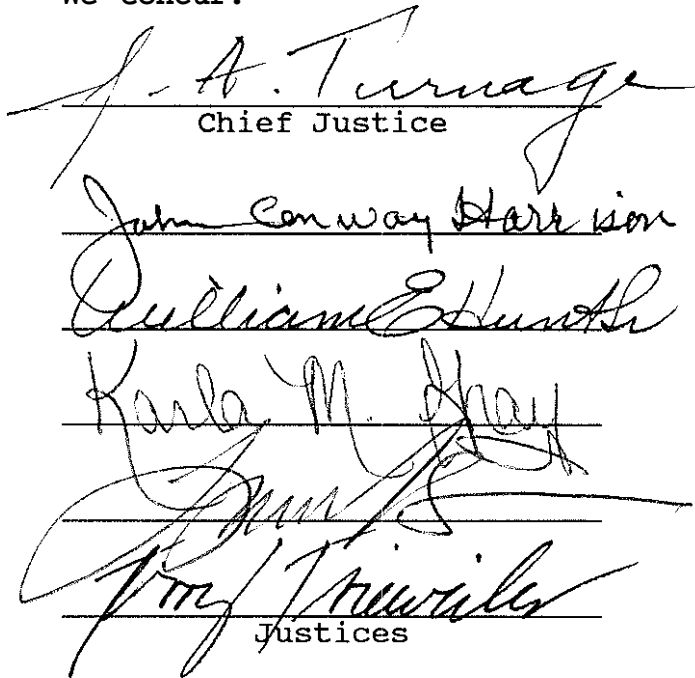 We concur:
J. A. Turnage
Chief Justice
John Conway Harrison
William E Hunt Sr
Karla M. Gray
Terry Trieweiler
Justices